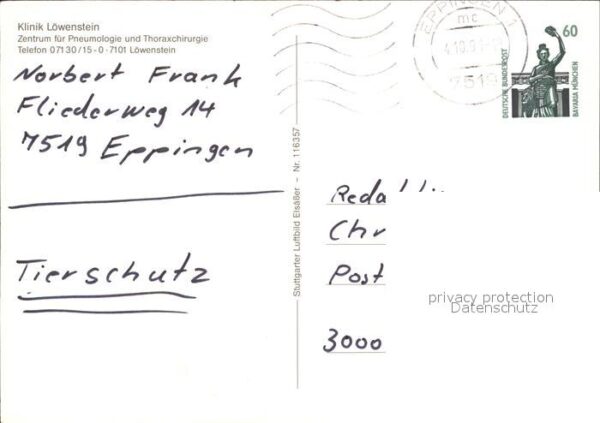 Klinik Löwenstein
Zentrum für Pneumologie und Thoraxchirurgie
Telefon 07130/15-0 · 7101 Löwenstein
Norbert Frank
Fliederweg 14
7519 Eppingen
Tierschutz
Stuttgarter Luftbild Elsäßer – Nr. 116357
EPPINGEN 1
mc
7519
60
DEUTSCHE BUNDESPOST
BAVARIA MÜNCHEN
Chr
Post
3000
privacy protection
Datenschutz